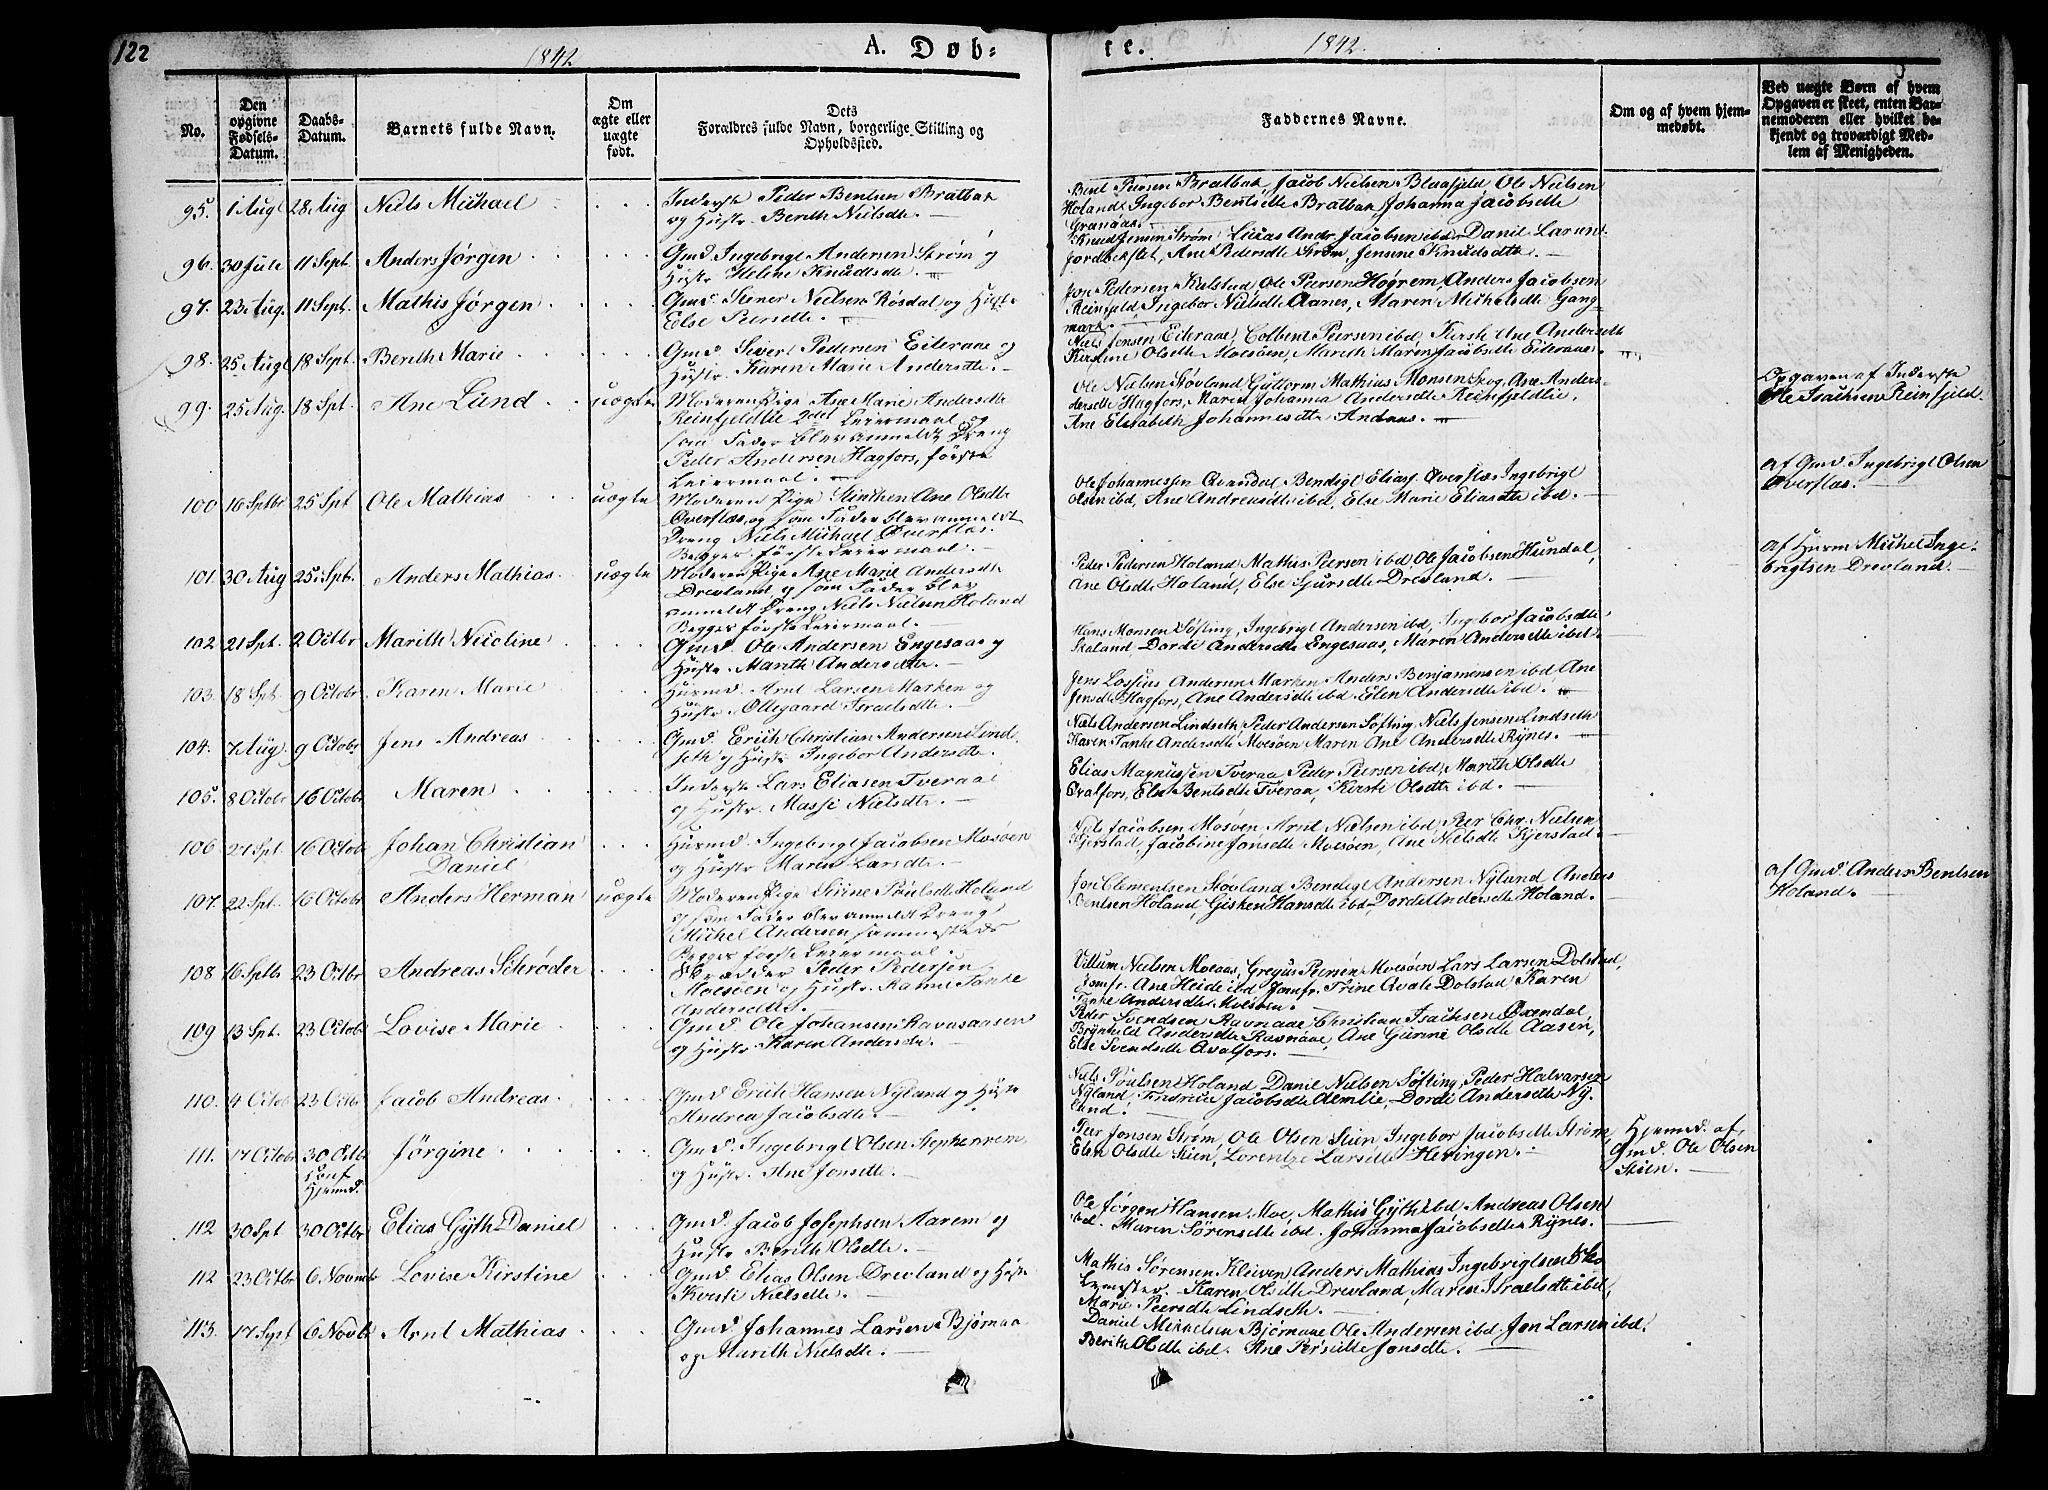 122
1842
A. Døb-
te.
1842.
No.
Den opgivne Fødsels-Datum.
Daabs-Datum.
Barnets fulde Navn.
Om ægte eller uægte født.
Dets Forældres fulde Navn, borgerlige Stilling og Opholdssted.
Faddernes Navne.
Om og af hvem hjem-medøbt.
Ved uægte Børn af hvem Opgaven er skeet, enten Bar-nemoderen eller hvilket be-kjendt og troværdigt Med-lem af Menigheden.
95. 1 Augt 28 Aug Niels Michael
Inderste Peder Bentsen Bratbak
og Hustr. Berith Nielsdtr.
Bent Peersen Bratbak, Jacob Nielsen Blaafjeld, Ole Nielsen
Holand Ingebor Bentsdtr Bratbak, Johanna Jacobsdtr
Granaas.
96. 30 Julie 11 Sept. Anders Jørgen
Gmd Ingebrigt Andersen Strøm og
Hustr. Helene Knudtsdtr.
Knud Jensen Strøm Lucas Andr. Jacobsen ibd Daniel Larsen
Ane Pedersdtr Strøm, Jensine Knudsdtr.
97. 23 Aug. 11 Sept. Mathis Jørgen
Gmd. Stener Nielsen Røsdal og Hustr.
Else Peersdtr.
Jon Pedersen Kulstad Ole Peersen Høgrem, Anders Jacobsen
Reinfjeld Ingebor Nielsdtr Aanes, Maren Michelsdtr Gang-
mark.
98. 25 Augt 18 Sept. Berith Marie
Gmd. Sivert Pedersen Eiteraae og
Hustr. Karen Marie Andersdtr.
Niels Jonsen Eiteraae, Colbent Peersen ibd, Kirsti Ane Andersdtr
Kirstine Olsdtr Moesøen, Marith Maren Jacobsdtr Eiteraae.
99. 25 Aug. 18 Sept. Ane Lund uægte
Moderen Pige Ane Marie Andersdtr
Reinfjeldlie 2det Leiermaal og
som Fader blev anmeldt Dreng
Peder Andersen Hagfors, første
Leiermaal.
Ole Nielsen Støvland Guttorm Mathias Monsen Skog, Ane Anders-
dersdtr Hagfors, Maren Johanna Andersdtr Reinfjeldlie
Ane Elisabeth Johannesdtr Andaas.
Opgaven af Inderste
Ole Isachsen Reinfjeld.
100 16 Septbr 25 Sept Ole Mathias uægte
Moderen Pige Stinchen Ane Olsdtr
Øverflæs, og som Fader blev anmeldt
Dreng Niels Michael Øverflæs.
Begges første Leiermaal.
Ole Johannessen Qvandal Bendigt Eliasf. Øverflæs Ingebrigt
Olsen ibd, Ane Andreasdtr ibd, Else Marie Eliasdtr ibd.
af Gmd. Ingebrigt Olsen
Øverflæs.
101. 30 Aug 25 Sept. Anders Mathias uægte
Moderen Pige Ane Marie Andersdtr
Drevland, og som Fader blev
anmeldt Dreng Niels Nielsen Holand
Begges første Leiermaal.
Peder Pedersen Holand Mathis Peersen ibd, Ole Jacobsen Hundal,
Ane Olsdtr Holand, Else Sjursdtr Drevland.
af Husm Michel Inge-
brigtsen Drevland.
102 21 Sept. 2 Octbr Marith Nicoline
Gmd. Ole Andersen Engesaas og
Hustr. Marith Andersdtr.
Hans Monsen Søfting, Ingebrigt Andersen ibd, Ingebor Jacobsdtr
Skaland, Dordi Andersdtr Engesaas, Maren Andersdtr ibd.
103. 18 Spt. 9 Octobr Karen Marie
Husmd. Arnt Larsen Marken og
Hustr. Ollegaard Israelsdtr.
Jens Lossius Andersen Marken Anders Benjaminsen ibd Ane
Jensdtr Hagfors, Ane Andersdtr ibd. Elen Andersdtr ibd.
104. 7 Aug. 9 Octobr Jens Andreas
Gmd. Erich Christian Andersen Lind-
seth og Hustr. Ingebor Andersdtr.
Niels Andersen Lindseth, Peder Andersen Søfting, Niels Jensen Lindseth
Karen Tanke Andersdtr Moesøen Maren Ane Andersdtr Rynes.
105. 8 Octobr 16 Octobr Maren
Inderste Lars Eliasen Tveraae
og Hustr. Massi Nielsdtr.
Elias Magnussen Tveraa, Peder Peersen ibd, Marith Olsdtr
Qvalfors, Else Bentsdtr Tveraa, Kirsti Olsdtr ibd.
106 21 Spt. 16 Octobr Johan Christian
Daniel
Husmd. Ingebrigt Jacobsen Mosøen
og Hustr. Maren Larsdtr.
Niels Jacobsen Mosøen Arnt Nielsen ibd, Peer Chr. Nielsen
Kjerstad, Jacobine Jonsdtr Moesøen, Ane Nielsdtr Kjerstad.
107. 22 Spt. 16 Octobr Anders Herman uægte
Moderen Pige Stine Poulsdtr Holand
og som Fader blev anmeldt Dreng
Michel Andersen sammesteds
Begges første Leiermaal.
Jon Clementsen Støvland Bendigt Andersen Nyland Anders
Bentsen Holand, Gisken Hansdtr ibd, Dordi Andersdtr Holand.
af Gmd. Anders Bentsen
Holand.
108 16 Septbr 23 Octbr Andreas Schrøder
Skrædder Peder Pedersen
Moesøen og Hustr. Karen Tanke
Andersdtr.
Villum Nielsen Moeaas, Gregus Peersen Moesøen Lars Larsen Dolstad,
Jomfr. Ane Heide ibd Jomfr. Trine Qvale Dolstad Karen
Tanke Andersdtr Moesøen.
109 13 Spt. 23 Octobr Lovise Marie
Gmd. Ole Johansen Ravnaasen
og Hustr. Karen Andersdtr.
Peder Svendsen Ravnaae, Christian Isachsen Øxendal,
Brynhild Andersdtr Ravnaae, Ane Gurine Olsdtr Aasen,
Else Svendsdtr Qvalfors.
110. 4 Octobr 23 Octbr Jacob Andreas
Gmd Erich Hansen Nyland og Hustr
Andrea Jacobsdtr
Niels Poulsen Holand Daniel Nielsen Søfting, Peder Halvarsen
Nyland, Jacobsdtr Aemlie, Dordi Andersdtr Ny-
land.
111. 17 Octobr 30 Octbr Jørgine
conf
Hjemd.
Gmd. Ingebrigt Olsen Stephenrem
og Hustr. Ane Jonsdtr.
Peer Jonsen Strøm, Ole Olsen Stien Ingebor Jacobsdtr Strøm
Elen Olsdtr Stien, Lorentze Larsdtr Hevingen.
Hjemd. af
Gmd. Ole Olsen
Stien.
112 30 Spt 30 Octbr Elias Gÿth Daniel
Gmd. Jacob Josephsen Aarem og
Hustr Berith Olsdtr.
Ole Jørgen Hansen Moe, Mathis Gÿth ibd Andreas Olsen
ibd. Maren Sørensdtr ibd. Johanna Jacobsdtr Rynes.
112 23 Octbr 6 Novmb Lovise Kirstine
Gmd. Elias Olsen Drevland og Hustr
Kirsti Nielsdtr.
Mathis Sørensen Kleiven Anders Mathias Ingebrigtsen Sko-
lemester. Karen Olsdtr Drevland, Maren Israelsdtr ibd,
Marie Peersdtr Lindseth.
113. 17 Sept 6 Novb Arnt Mathias
Gmd. Johannes Larsen Bjørnaa
og Marith Nielsdtr.
Daniel Mikkelsen Bjørnaae Ole Andersen ibd. Jon Larsen ibd.
Berith Olsdtr ibd. Ane Jonsdtr.